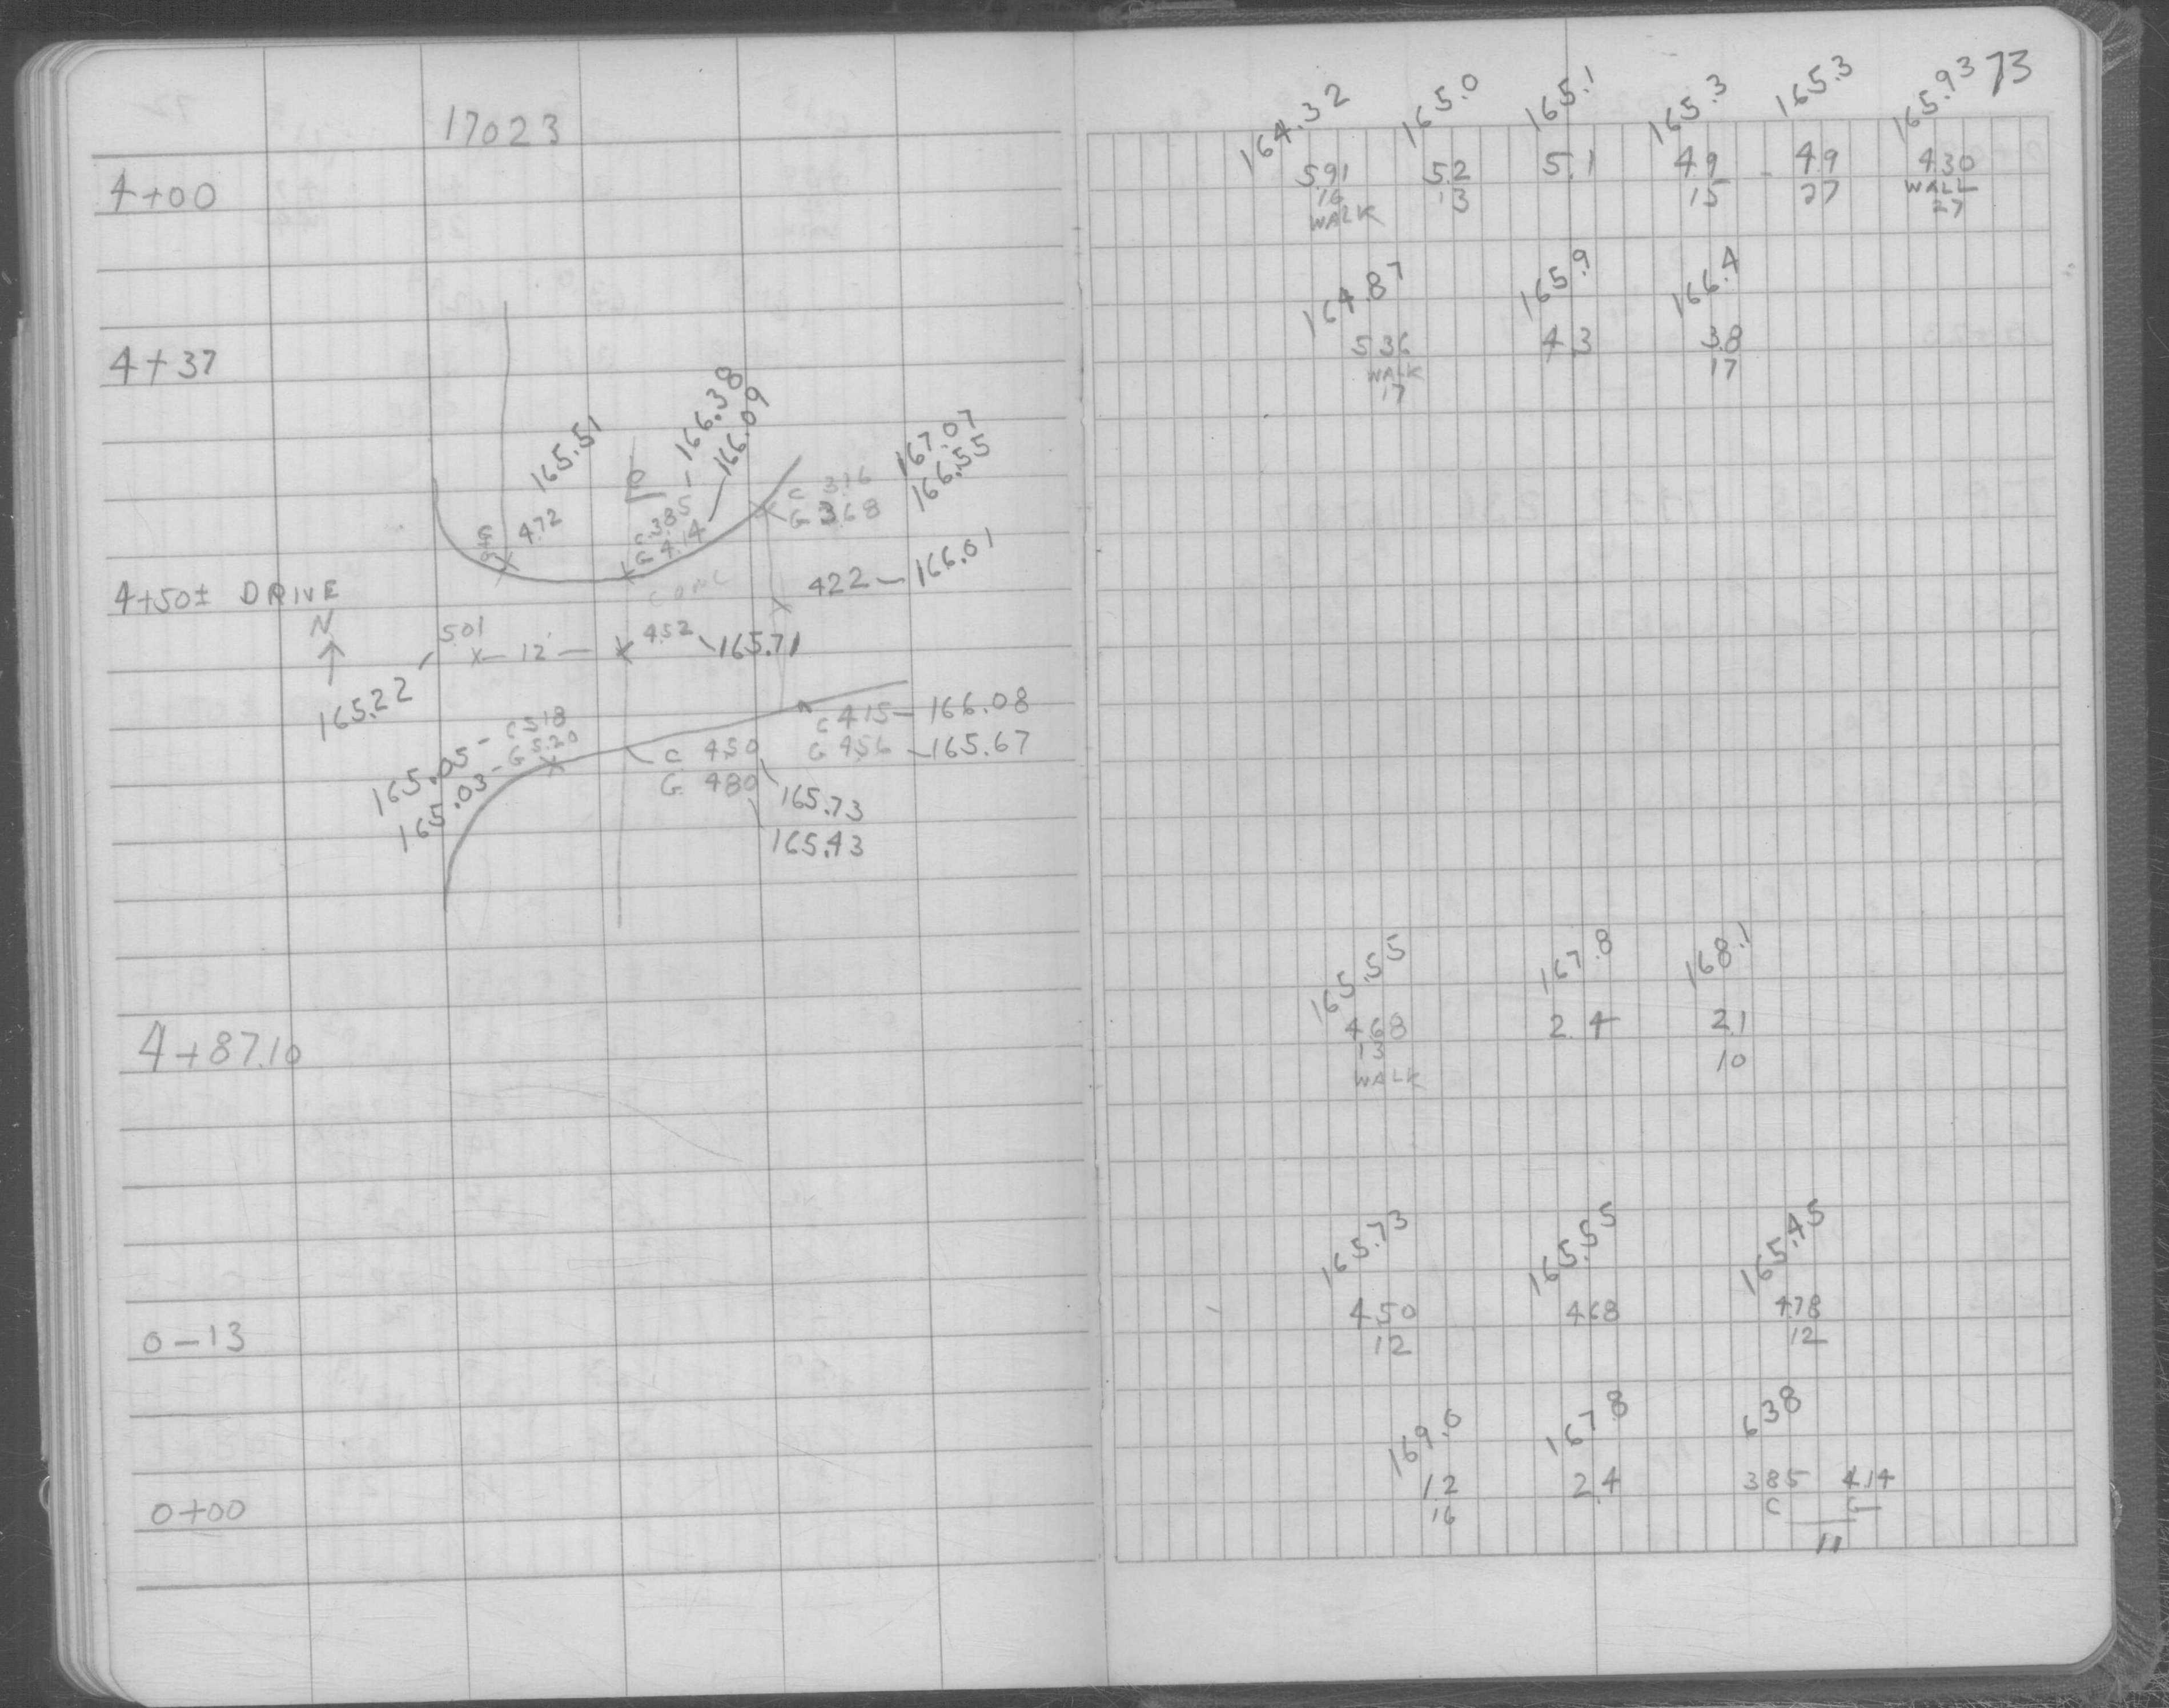 17023
4+00
4+37
165.51
166.38
166.09
167.07
166.55
C 3.16
G 3.68
4.72
C 3.85
G 4.14
4+50± DRIVE
N
CONC
422 — 166.01
501
X — 12' — X 4.52 165.71
165.22
C 415 — 166.08
G 4.56 — 165.67
165.05 - C 5.18
165.03 - G 5.20
C 4.50
G 480
165.73
165.43
4+87.10
0-13
0+00
73
164.32 165.0 165.1 165.3 165.3 165.93
5.91 5.2 5.1 4.9 4.9 4.30
16 13 15 27 WALL
WALK 27
164.87 165.9 166.4
5.36 4.3 3.8
WALK 17
17
165.55 167.8 168.1
4.68 2.4 2.1
13 10
WALK
165.73 165.55 165.45
4.50 4.68 4.78
12 12
169.0 167.8 638
1.2 2.4 3.85 4.14
16 C G
11